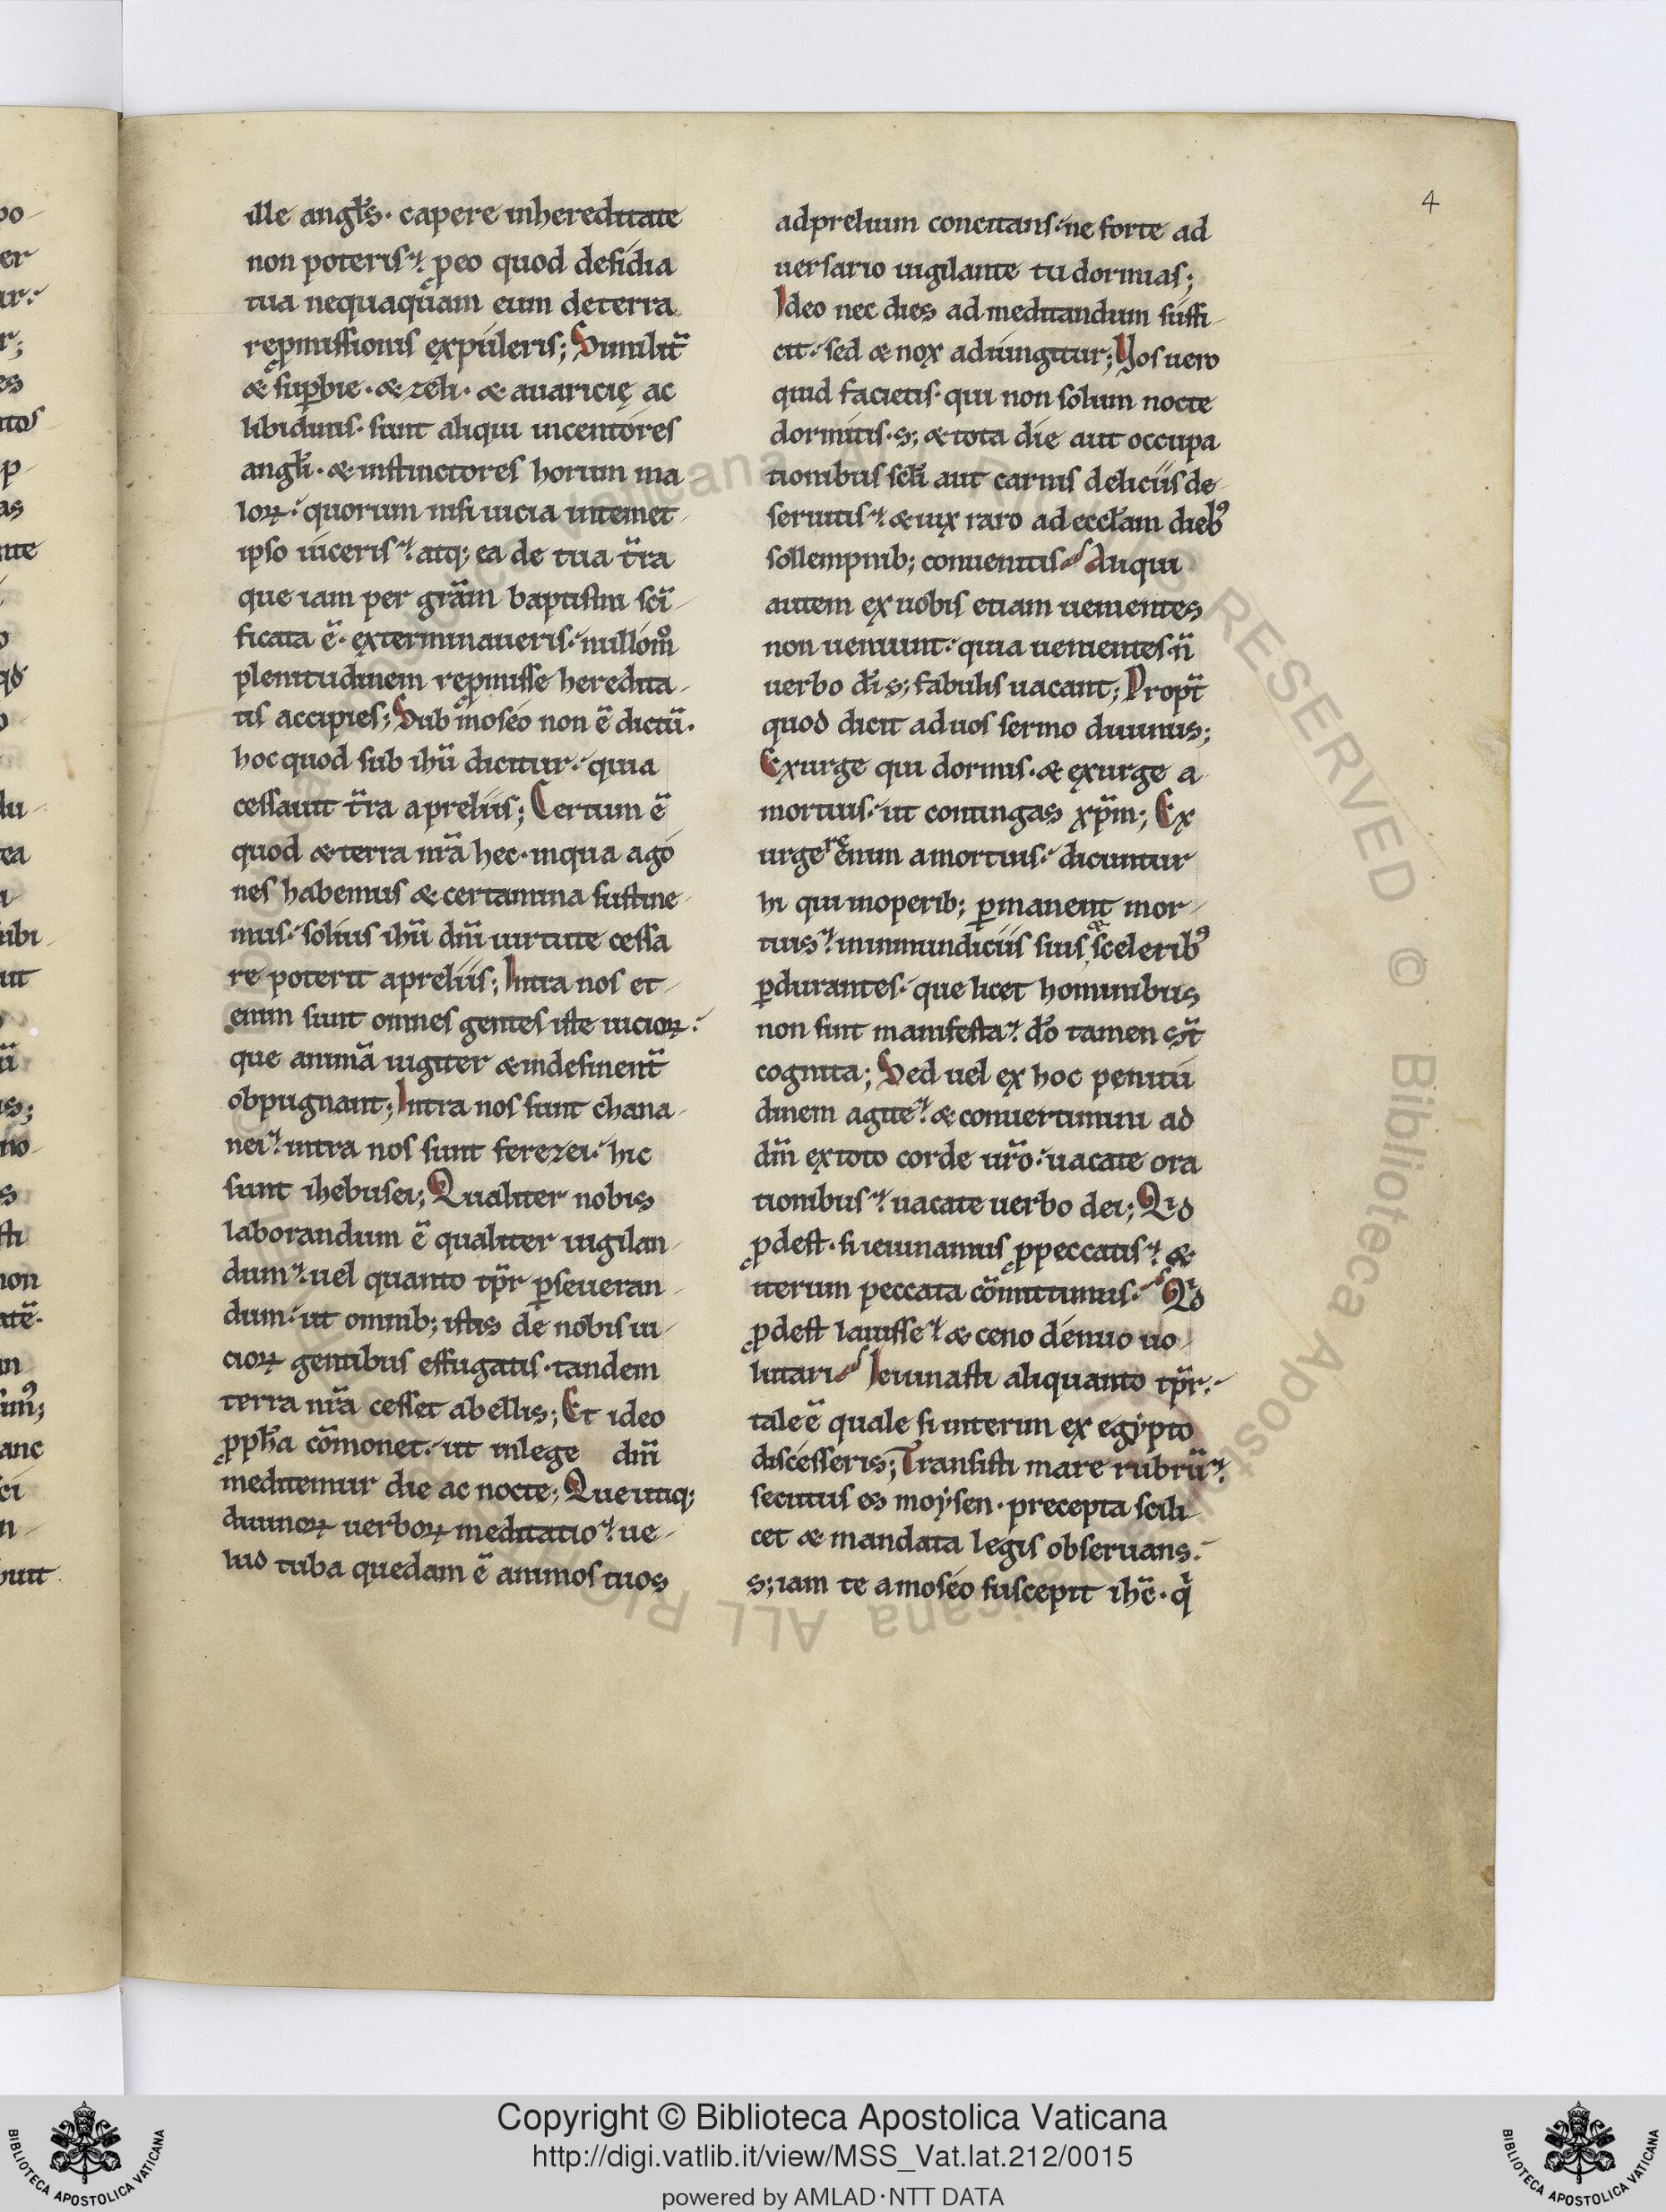 ille angl̄s· capere inhereditate
non poteris. ꝓeo quod desidia
tua nequaquam eum deterra
reꝓmissionis expúleris; Similit̄
& suꝑbie· & zeli· & auaricię ac
libidinis· sunt aliqui incentóres
angl̄i· & instinctores horum ma-
loꝝ· quorum nisi uicia intemet-
ipso uiceris· atq; ea de tua t̄ra
que iam per grām baptismi sc̄i-
ficata ē· exterminaueris· nullom̊
plenitudinem reꝓmisse heredita-
tis accipies; Sub moséo non ē dictū·
hoc quod sub ih̄u dicitur· quia
cessauit t̄ra apreliis; Certum ē
quod & terra nr̄a hec· inqua ago
nes habemus & certamina sustine-
mus· solius ih̄u dn̄i uirtute cessa
re poterit apreliis; Intra nos et-
enim sunt omnes gentes iste uicioꝝ·
que animā iugiter & indesinent̄
obpugnant; Intra nos sunt chana-
nei· intra nos sunt ferezei· hic
sunt ihebusei; Qualiter nobis
laborandum ē qualiter uigilan-
dum· uel quanto tp̄r ꝑseueran-
dum· ut omnib; istis de nobis ui-
cioꝝ gentibus effugatis· tandem
terra nr̄a cesset abellis; Et ideo
ꝓph̄a cōmonet· ut inlege dn̄i
meditemur die ac nocte; Que utiq;
diuinoꝝ uerboꝝ meditatio· ue-
lud tuba quedam ē animos tuos
4
adprelium concitans· ne forte ad
uersario uigilante tu dormias;
Ideo nec dies ad meditandum suffi-
cit· sed & nox adiungitur; Vos uero
quid facietis· qui non solum nocte
dormitis· s; & tota die aut occupa
tionibus scl̄i aut carnis deliciis de-
seruitis· & uix raro ad eccl̄am dieb⁹
sollempnib; conuenitis Aliqui
autem ex uobis etiam uenientes
non ueniunt· quia uenientes· n̄
uerbo dī s; fabulis uacant; Propt̄
quod dicit ad uos sermo diuinus;
Exurge qui dormis· & exurge a
mortuis· ut contingas xp̄m; Ex
urgere enim amortuis· dicuntur
hi qui inoperib; ꝑmanent mor-
tuis· inimmundiciis suis & sceleribꝰ
ꝑdurantes· que licet hominibus
non sint manifesta· dō tamen st̄
cognita; Sed uel ex hoc penitú
dinem agite· & conuertimini ad
dn̄m extoto corde ur̄o· uacate ora
tionibus· uacate uerbo dei; Qid
ꝓdest· si ieiunamus ꝓpeccatis· &
iterum peccata cōmittimus· Qid
ꝓdest lauisse· & ceno dénuo uo
lutari Ieiunasti aliquanto tp̄r·
tale ē quale si interim ex egipto
discésseris; Transisti mare rubrū·
secutus es moysen· precepta scili-
cet & mandata legis obseruans·
s; iam te amoséo suscepit ih̄c· q̇
Copyright © Biblioteca Apostolica Vaticana
http://digi.vatlib.it/view/MSS_Vat.lat.212/0015
powered by AMLAD·NTT DATA